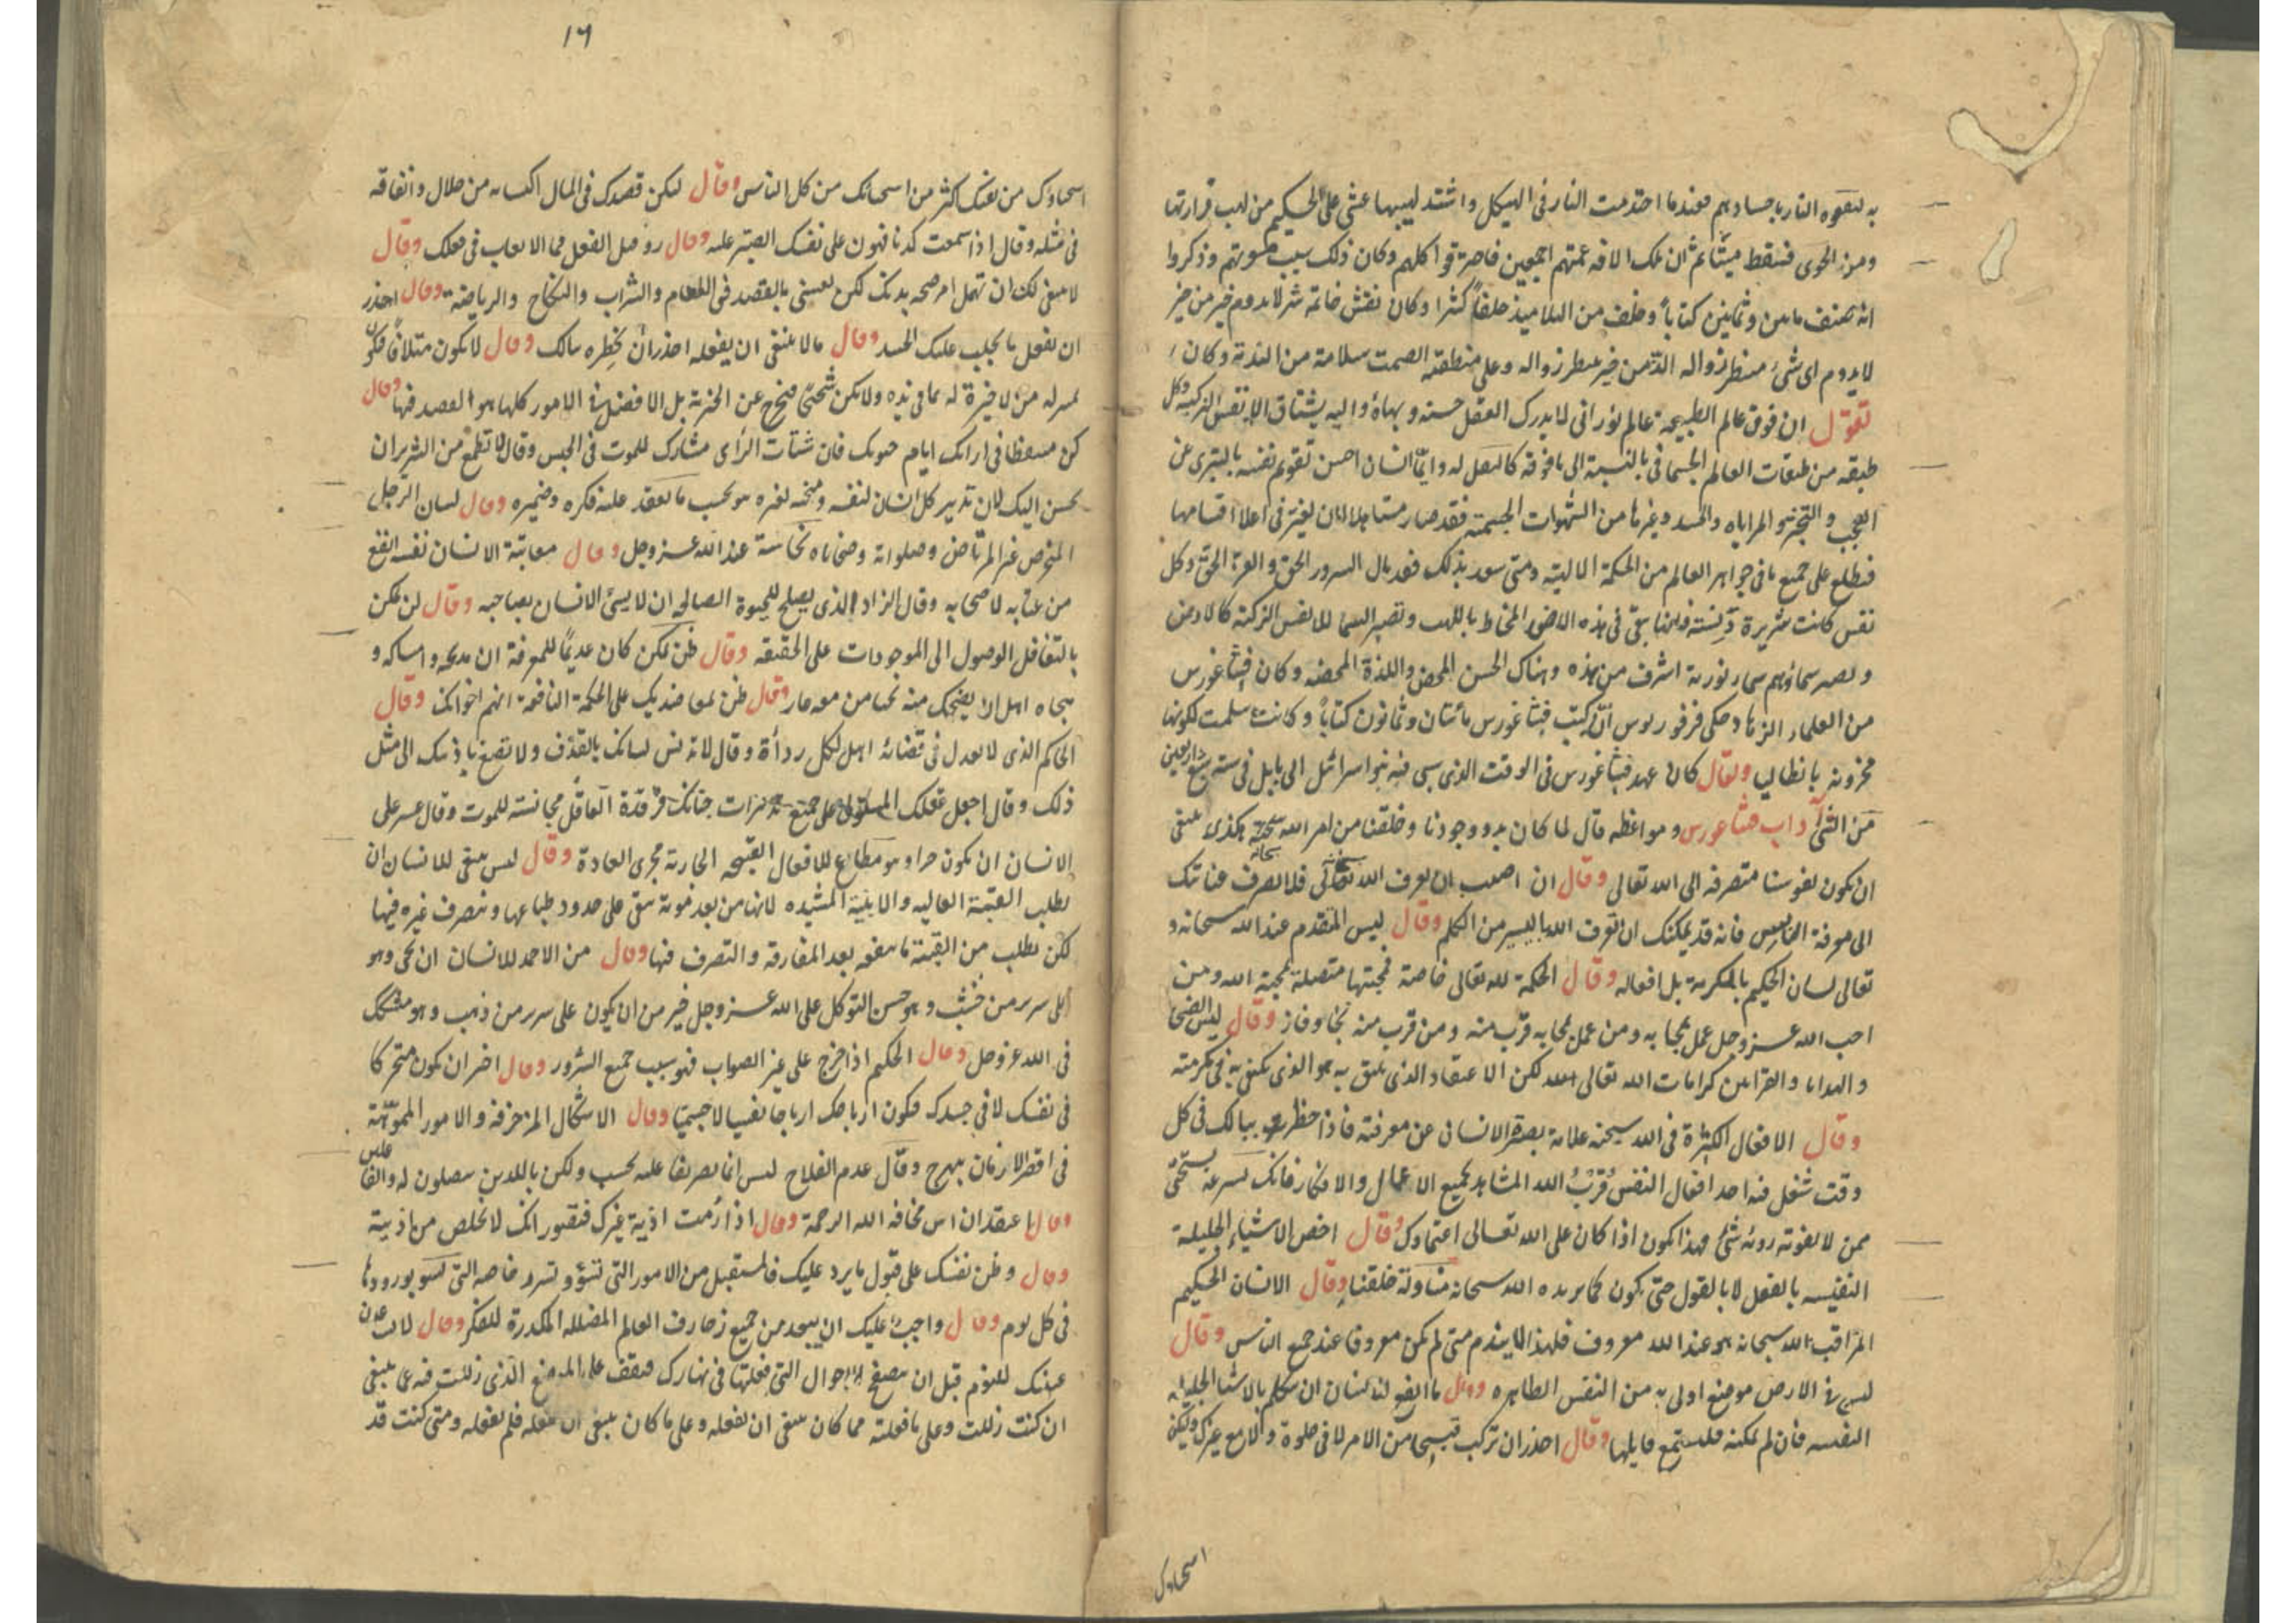 به لتقوه النار باجسادهم فعندما احتدمت النار فى الهيكل واشتد لهيبها غشى على الحكيم من لهب قرارتها
ومن الخوى فسقط ميتًا ثم ان تلك الافة عمتهم اجمعين فاحترقوا كلهم وكان ذلك سبب موتهم وذكروا
انه صنف مايتين وثمانين كتاباً وخلف من التلاميذ خلقاً كثيرا وكان نقش خاتمه شر لا يدوم خير من خير
لا يدوم اى شئ منتظر زواله الذ من خير ينتظر زواله وعلى منطقته الصمت سلامة من الندمة وكان
تقول ان فوق عالم الطبيعة عالم نورانى لا يدرك العقل حسنه وبهاؤه واليه يشتاق الانفس الزكية وكل
طبقه من طبقات العالم الجسمانى بالنسبة الى ما فوقه كالثقل له وايّما انسان احسن تقويم نفسه بالتبرى عن
العجب والتجبر والمراياه والحسد وغيرها من الشهوات الجسمية فقد صار مستاهلا لان فى اعلا اقسامها
فيطلع على جميع ما فى جواهر العالم من الحكمة الالهية ومتى سعد بذلك فقد نال السرور الحق والعزة الحق وكل
نفس كانت شريرة دنسة فانها تبقى فى هذه الارض المحاط باللهب وتصير السما للانفس الزكية كالارض
وتصير سماؤهم سماء نورية اشرف من هذه وهناك الحسن المحض واللذة المحضة وكان فيثاغورس
من العلماء الزهاد حكى فرفوريوس انّ كتب فيثاغورس مائتان وثمانون كتاباً وكانت سلمت لكونها
مخزونة بانطاليا ويقال كان عهد فيثاغورس فى الوقت الذى سبى فيه بنو اسرائيل الى بابل فى سنة سبع واربعين
من آداب فيثاغورس ومواعظه قال لما كان بدو وجودنا وخلقنا من امر الله سبحنه هكذى ينبغى
ان يكون نفوسنا متصرفه الى الله تعالى وقال ان احببت ان تعرف الله تعالى سبحانه فلا تصرف عنايتك
الى معرفة الناس فانه قد يمكنك ان تعرف الله باليسير من الكلم وقال ليس المتقدم عند الله سبحانه و
تعالى لسان الحكيم بالتكرمة بل افعاله وقال الحكمة لله تعالى خاصة فمحبتها متصلة بمحبة الله ومن
احب الله عز وجل عمل بمحابه ومن عمل بمحابه قرب منه ومن قرب منه نجا وفاز وقال ليس الضحايا
والهدايا والقرابين كرامات الله تعالى لكن الاعتقاد الذى يليق به هو الذى يكتفى به فى تكرمته
وقال الاقوال الكثيرة فى الله سبحنه علامة تقصير الانسانى عن معرفته فاذا خطر ببالك فى كل
وقت شغل فيه احد افعال النفس قرب الله المشاهد لجميع الاعمال والافكار فانك لسرعة تستحى
ممن لا يفوته رويه شئ فهذا يكون اذا كان على الله تعالى اعتمادك وقال اخص الاشياء الجليلة
النفيسه بالفعل لا بالقول حتى يكون كما يريده الله سبحانه منا ولة خلقنا وقال الانسان الحكيم
المراقب لله سبحانه هو عند الله معروف فلهذا لا يندم متى لم يكن معروفا عند جميع الناس وقال
ليس فى الارض موضع اولى به من النفس الطاهره وقال ما انفع للانسان ان يتكلم بالاشيا الجليله
النفيسه فان لم يمكنه فليستمع قايلها وقال احذر ان تركب قبيحا من الامر لا فى خلوة ولا مع غيرك وليكن
استحياؤك
١٦
استحياؤك من نفسك اكثر من استحيائك من كل الناس وقال ليكن قصدك فى المال اكتسابه من حلال وانفاقه
فى مثله وقال اذا سمعت كذبا فهون على نفسك الصبر عليه وقال رو قبل الفعل لا تعاب فى فعلك وقال
لا ينبغى لك ان تهمل امر صحه بدنك لكن تعنى بالقصد فى الطعام والشراب والنكاح والرياضة وقال احذر
ان تفعل ما يجلب عليك الحسد وقال مالا ينبغى ان يفعله احذر ان تخطره ببالك وقال لا تكون متلافاً فتكون
بمنزله من لا خبرة له بما فى يده ولا تكن شحيحا فتخرج عن الحرية بل الافضل فى الامور كلها هو القصد فيها وقال
كن متيقظا فى ارائك ايام حيوتك فان شتات الراى مشارك للموت فى الجنس وقال لا تطمع من الشرير ان
يحسن اليك لان تدبير كل انسان لنفسه ومنحه لغيره هو بحسب ما يعقد عليه فكره وضميره وقال لسان الرجل
المتخرص غير المرتاض وصلواته وضحاياه نجاسة عند الله عز وجل وقال معاتبة الانسان نفسه انفع
من عتابه لاصحابه وقال الزاد الذى يصلح للحيوة الصالحه ان لا يسئ الانسان بصاحبه وقال لن يمكن
بالتغافل الوصول الى الموجودات على الحقيقه وقال ظن بمن كان عديمًا للمعرفة ان مدحه وامساكه و
هجاه اهل لان يضحك منه وقال ظن بمعاضديك على الحكمة النافعة انهم اخوانك وقال
الحاكم الذى لا يعدل فى قضائه اهل لكل رداءة وقال لا تدنس لسانك بالقذف ولا تصغ باذنيك الى مثل
ذلك وقال اجعل عقلك المستولى على جميع تدبيرات حياتك فرقدة العاقل مجانسة للموت وقال عسر على
الانسان ان يكون حرا وهو مطاوع للافعال القبيحه الجارية مجرى العادة وقال ليس ينبغى للانسان ان
يطلب القنية العاليه والابنية المشيده لانها من بعد موته تبقى على حدود طباعها ويتصرف غيره فيها
لكن يطلب من القنية ما ينفعه بعد المفارقة والتصرف فيها وقال من الاحمد للانسان ان يحى وهو
على سرير من خشب وهو حسن التوكل على الله عز وجل خير من ان يكون على سرير من ذهب وهو متشكك
فى الله عز وجل وقال الحكيم اذا خرج على غير الصواب فهو سبب جميع الشرور وقال اختر ان تكون متحركا
فى نفسك لا فى جسدك فيكون ارباحك ارباحا نفسيا لا جسميا وقال الاشكال المزخرفة والامور المموهة
فى اقصر الازمان تبهرج وقال عدم الفلاح ليس انما يصر بفاعليه فحسب ولكن بالذين يصلون له والفاعلين
وقال اعتقد ان اس مخافه الله الرحمة وقال اذا رمت اذية غيرك فتصور انك لا تخلص من اذيته
وقال وطن نفسك على قبول ما يرد عليك فى المستقبل من الامور التى تسؤ وتسر وخاصه التى تسو بورودها
فى كل يوم وقال واجب عليك ان يبعد من جميع زخارف العالم المضلله المكدرة للفكر وقال لا تدعن
عينك للنوم قبل ان تتصفح الاحوال التى فعلتها فى نهارك فتقف على الموضع الذى زللت فيه عما ينبغى
ان كنت زللت وعلى ما فعلته مما كان ينبغى ان تفعله وعلى ما كان ينبغى ان تفعله فلم تفعله ومتى كنت قد